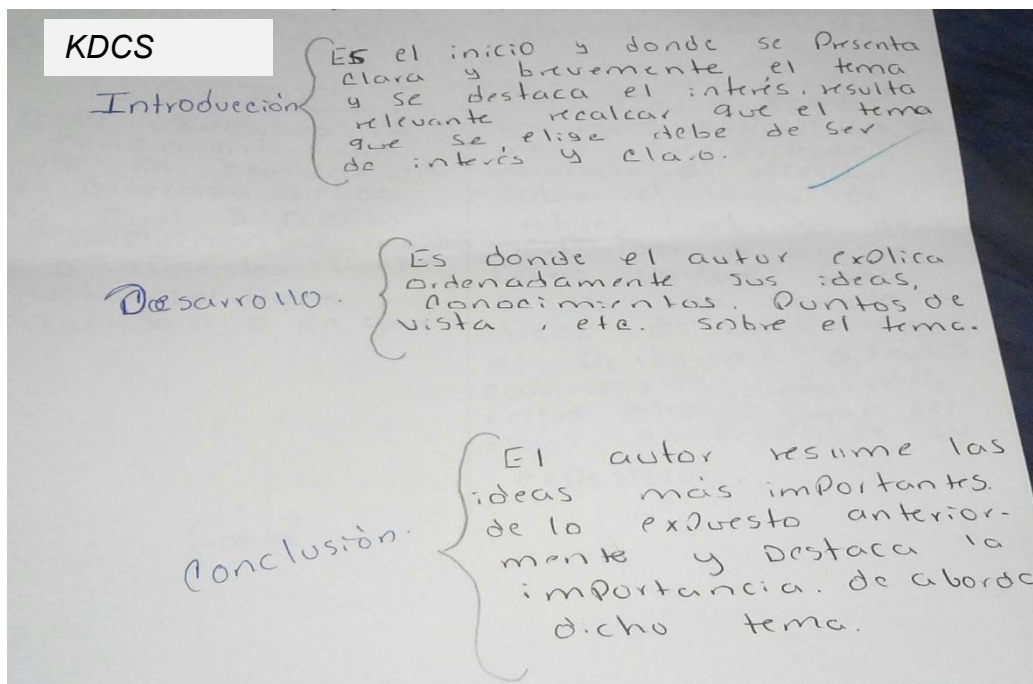 KDCS
Introducción
Es el inicio y donde se Presenta
clara y brevemente el tema
y se destaca el interés. resulta
relevante recalcar que el tema
que se elige debe de ser
de interés y claro.
Desarrollo.
Es donde el autor explica
ordenadamente sus ideas,
Conocimientos. Puntos de
vista, etc. sobre el tema.
Conclusión.
El autor resume las
ideas más importantes.
de lo expuesto anterior-
mente y Destaca la
importancia. de aborda
dicho tema.